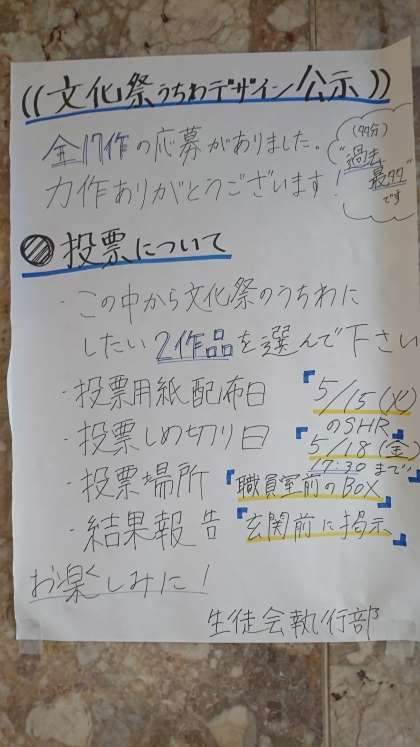 ((文化祭うちわデザイン公示))
全17作の応募がありました。
力作ありがとうございます!
(多分)
"過去
最多"
です
投票について
・この中から文化祭のうちわに
したい2作品を選んで下さい
・投票用紙配布日 「5/15(火)
のSHR」
・投票しめ切り日 「5/18(金)
17:30まで」
・投票場所 「職員室前のBOX」
・結果報告 「玄関前に掲示」
お楽しみに!
生徒会執行部